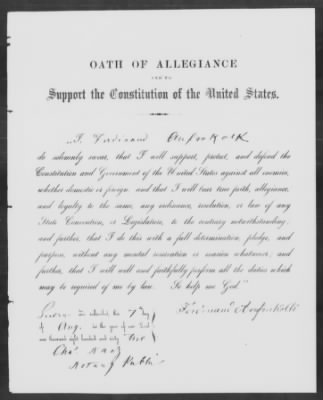 OATH OF ALLEGIANCE
AND TO
Support the Constitution of the United States.
I, Ferdinand
do solemnly swear, that I will support, protect, and defend the
Constitution and Government of the United States against all enemies,
whether domestic or foreign, and that I will bear true faith, allegiance,
and loyalty to the same, any ordinance, resolution, or law of any
State Convention, or Legislature, to the contrary notwithstanding;
and further, that I do this with a full determination, pledge, and
purpose, without any mental reservation or evasion whatsoever; and
further, that I will well and faithfully perform all the duties which
may be required of me by law. So help me God."
Ferdinand
Sworn and subscribed, this 7th day
of Aug. in the year of our Lord
one thousand eight hundred and sixty two
Chas
Notary Public